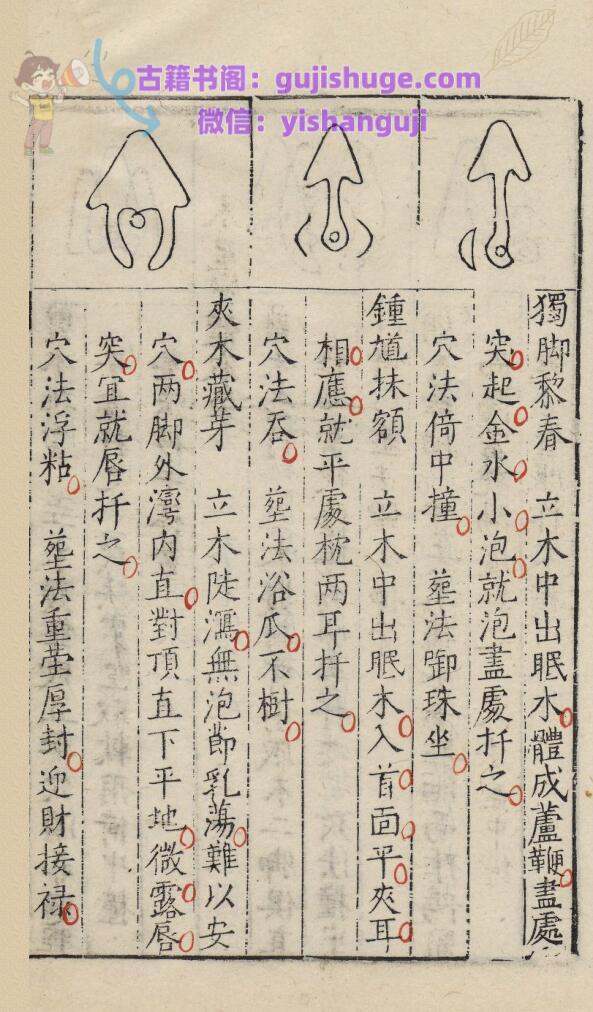 古籍书阁：gujishuge.com
微信：yishanguji
獨脚黎春　立木中出眠水體成蘆鞭盡處
突起金水小泡就泡盡處扦之
穴法倚中撞　塟法啣珠坐
鍾馗抹額　立木中出眠木入首面平夾耳
相應就平處枕两耳扦之
穴法吞　塟法浴瓜不樹
夾木藏芽　立木陡瀉無泡節乳蕩難以安
穴两脚外灣内直對頂直下平地微露唇
突宜就唇扦之
穴法浮粘　塟法重塋厚封迎財接禄